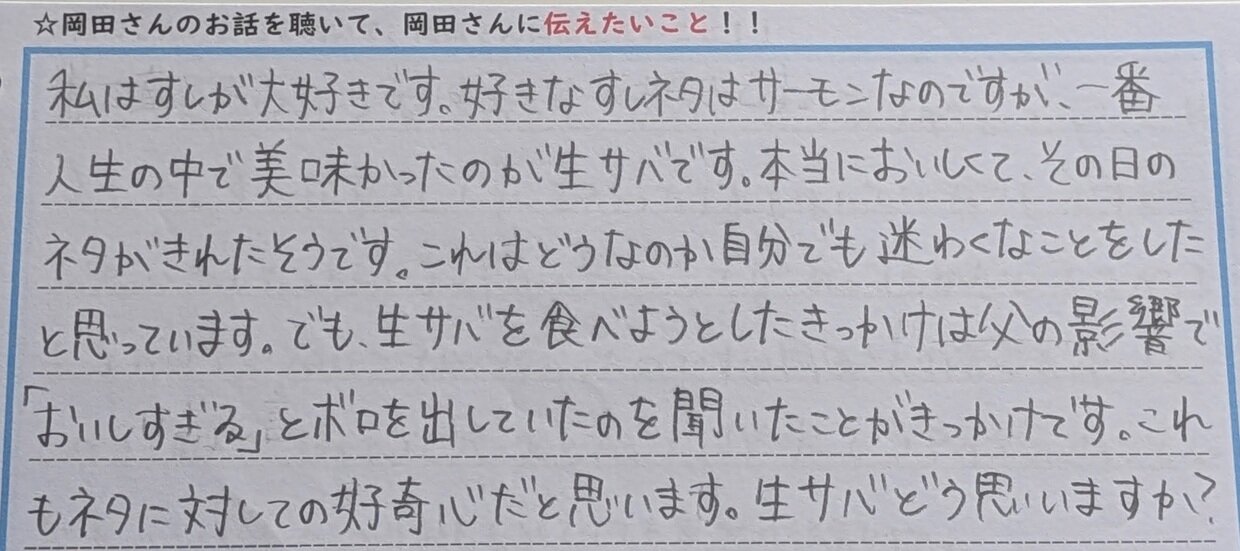 ☆岡田さんのお話を聴いて、岡田さんに伝えたいこと！！
私はすしが大好きです。好きなすしネタはサーモンなのですが、一番
人生の中で美味かったのが生サバです。本当においしくて、その日の
ネタがきれたそうです。これはどうなのか自分でも迷わくなことをした
と思っています。でも、生サバを食べようとしたきっかけは父の影響で
「おいしすぎる」とボロを出していたのを聞いたことがきっかけです。これ
もネタに対しての好奇心だと思います。生サバどう思いいますか？